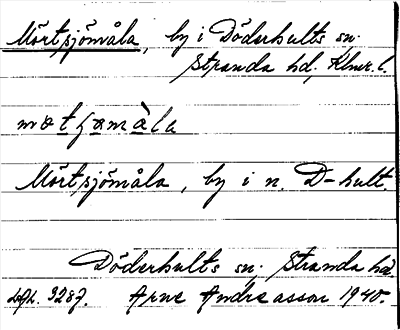 Mörtsjömåla, by i Döderhults sn.
Stranda hd, Klmr. l.
Mörtsjömåla, by i n. D-hult.
Döderhults sn. Stranda hd.
3287. Arne Andreasson 1940.